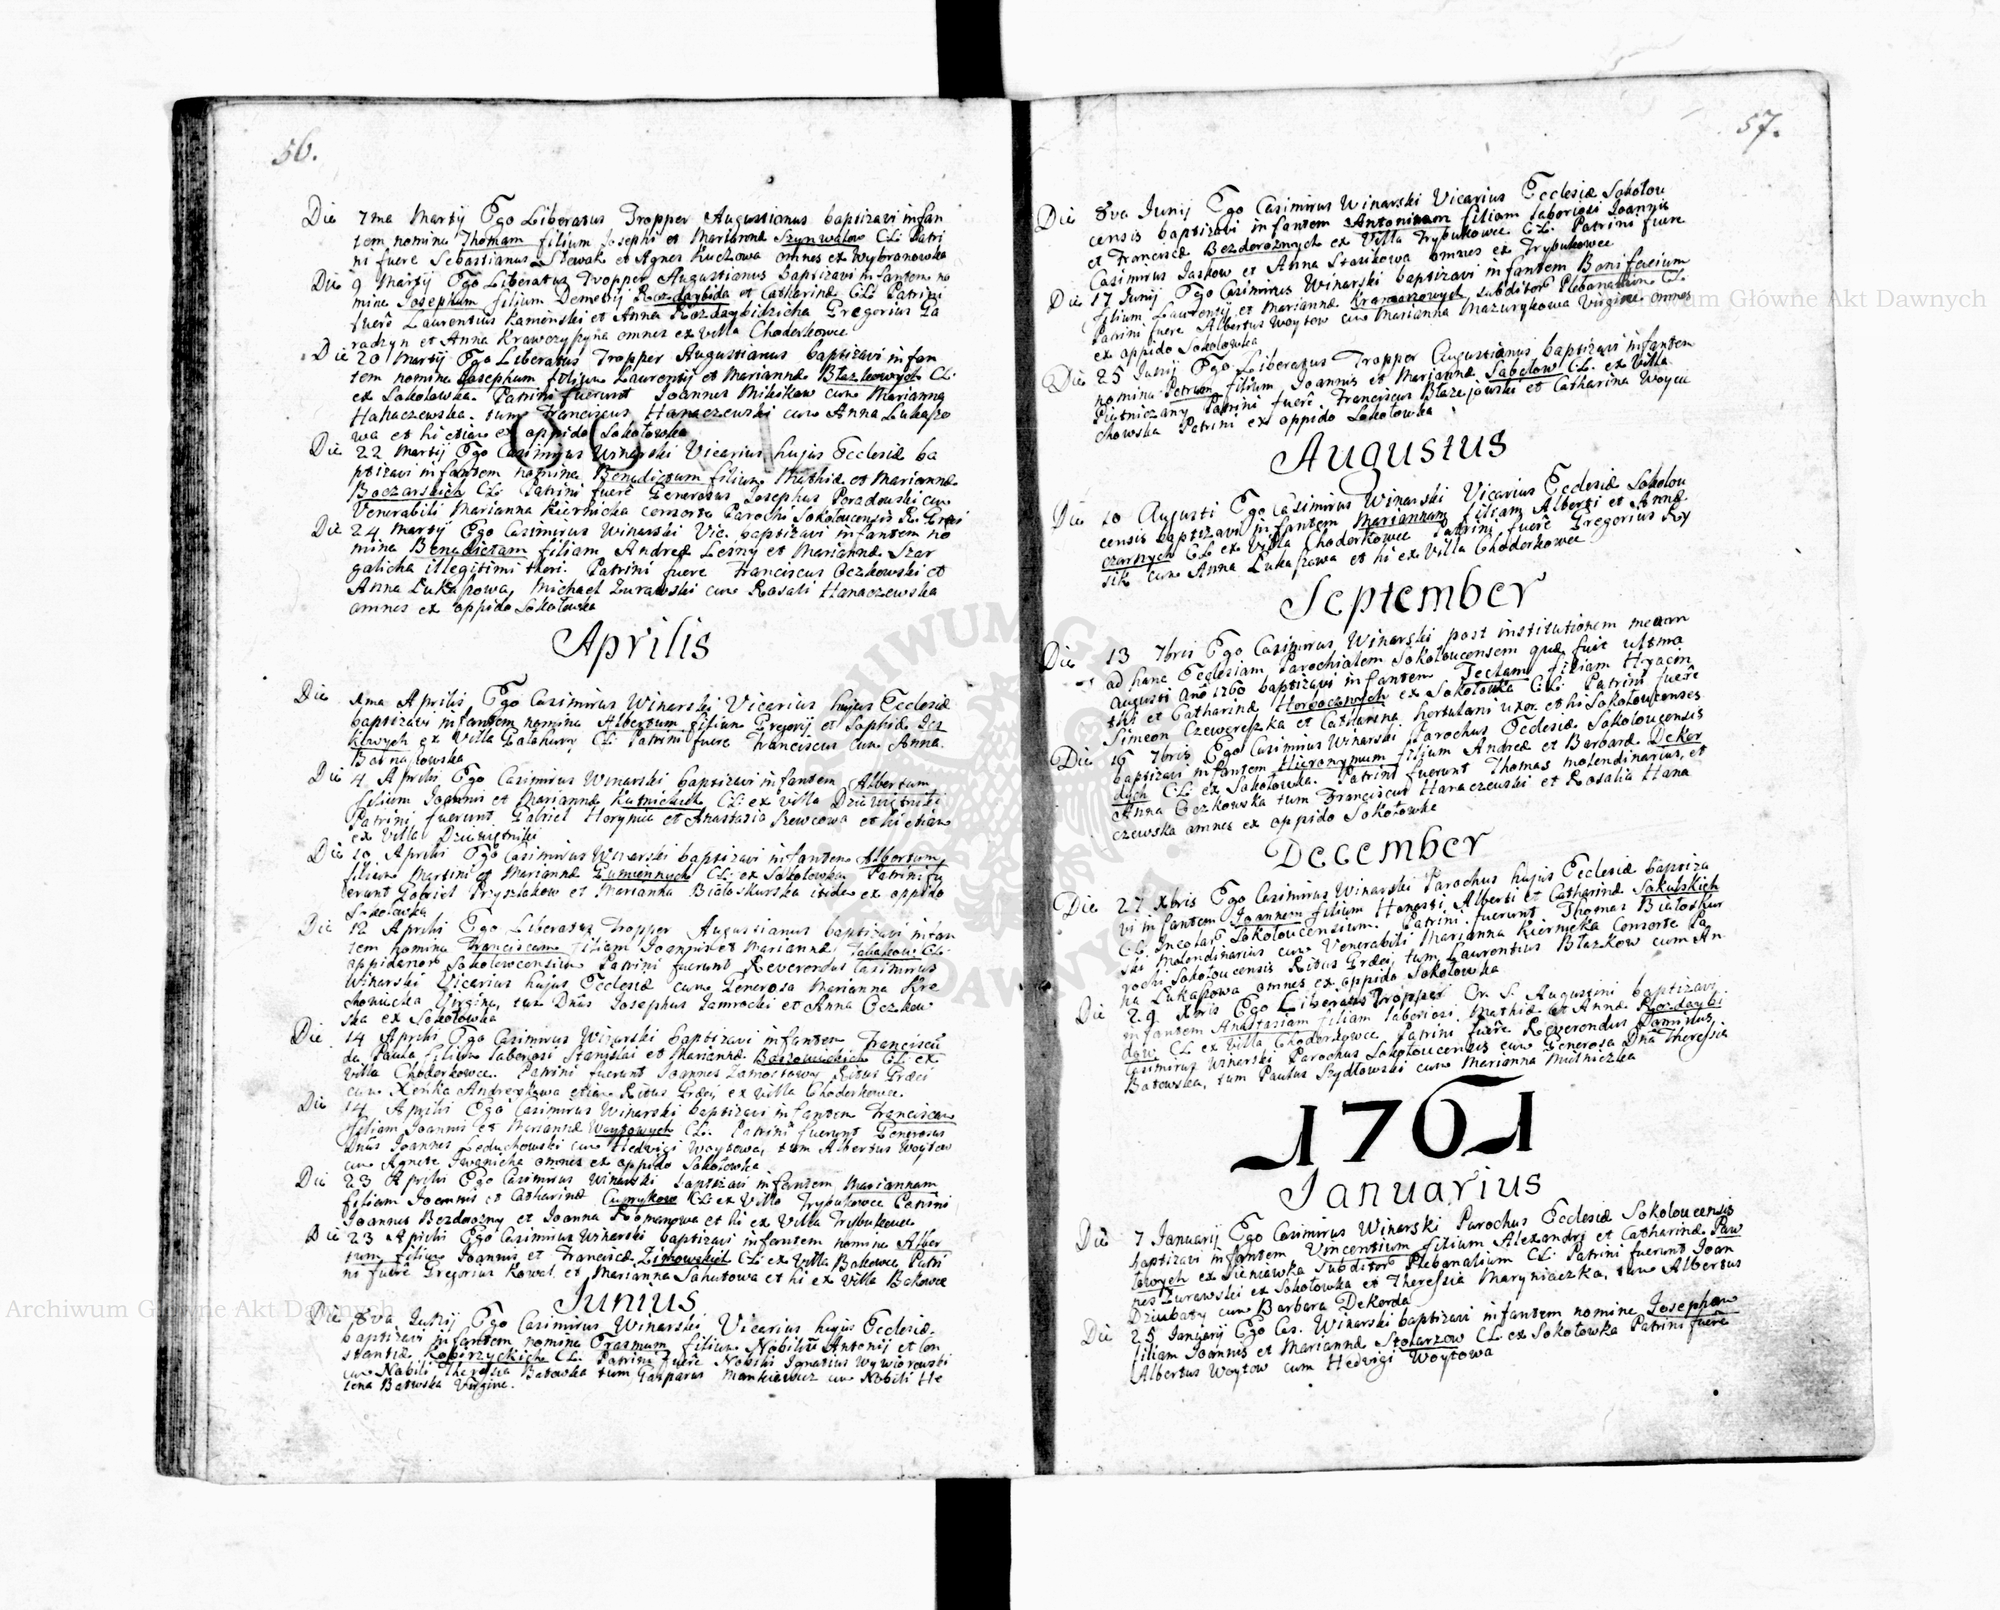 56.
Die 7ma Martij Ego Liberatus Tropper Augustianus baptizavi infan
tem nomine Thomam filium Josephi et Mariannæ Szynwalow CL: Patri
ni fuere Sebastianus Slowak et Agnes Kuchowa omnes ex Wybranowka
Die 9 Martij Ego Liberatus Tropper Augustianus baptizavi infantem no
mine Josephum filium Demetrij Rozdaybida et Catharinæ CL: Patrini
fuerê Laurentius Kamenski et Anna Rozdaybidzicha Gregorius
et Anna omnes ex villa Choderkowce
Die 20 Martij Ego Liberatus Tropper Augustianus baptizavi infan
tem nomine Josephum filium Laurentij et Mariannæ Błazkowych CL:
ex Sokołowka. Patrini fuerunt Joannes cum Marianna
Hanaczewska. tum Franciscus Hanaczewski cum Anna Lukaszo
wa et hi etiam ex oppido Sokołowka
Die 22 Martij Ego Casimirus Winarski Vicarius hujus Ecclesiæ ba
ptizavi infantem nomine Benedictum filium Mathiæ et Mariannæ
Boczarskich CL: Patrini fuerê Generosus Josephus Poradowski cum
Venerabili Marianna Kiernicka consorte Parochi Sokołoucensis R. Græci
Die 24 Martij Ego Casimirus Winarski Vic. baptizavi infantem no
mine Benedictam filiam Andreæ Lesny et Mariannæ Szar
galicha illegitimi thori. Patrini fuere Franciscus Oczkowski et
Anna Lukaszowa, Michael Zurawski cum Rosali Hanaczewska
omnes ex oppido Sokołowka
Aprilis
Die 1ma Aprilis Ego Casimirus Winarski Vicarius hujus Ecclesiæ
baptizavi infantem nomine Albertum filium Gregorij et Sophiæ
ex Villa CL: Patrini fuere Franciscus cum Anna
Die 4 Aprilis Ego Casimirus Winarski baptizavi infantem Albertum
filium Joannis et Mariannæ CL: ex villa Dziewiętniki
Patrini fuerunt Gabriel Horynia et Anastasia Szewcowa et hi etiam
ex villa Dziewiętniki
Die 10 Aprilis Ego Casimirus Winarski baptizavi infantem Albertum
filium Martini et Mariannæ Gumiennych CL: ex Sokołowka. Patrini fu
erunt Gabriel Pryszlakow et Marianna Białoskurska itidem ex oppido
Sokołowka
Die 12 Aprilis Ego Liberatus Tropper Augustianus baptizavi infan
tem nomine Franciscum filium Joannis et Mariannæ CL:
oppidanor Sokołowcensium Patrini fuerunt Reverendus Casimirus
Winarski Vicarius hujus Ecclesiæ cum Generosa Marianna
Virgine, tum Dnus Josephus Jamrocki et Anna Oczkow
ska ex Sokołowka
Die 14 Aprilis Ego Casimirus Winarski baptizavi infantem Franciscû
de Paula filium laboriosi Stanislai et Mariannæ CL: ex
villa Choderkowce. Patrini fuerunt Joannes Ritus Græci
cum Xenka Andreykowa etiam Ritus Græci ex villa Choderkowce
Die 14 Aprilis Ego Casimirus Winarski baptizavi infantem Franciscam
filiam Joannis et Mariannæ Woytowych CL: Patrini fuerunt Generosus
Dnus Joannes Leduchowski cum Hedvigi Woytowa, tum Albertus Woytow
cum Agnete omnes ex oppido Sokołowka
Die 23 Aprilis Ego Casimirus Winarski baptizavi infantem Mariannam
filiam Joannis et Catharinæ CL: ex Villa Trybukowce Patrini
Joannes Bezdrozny et Joanna Romanowa et hi ex villa Trybukowce
Die 23 Aprilis Ego Casimirus Winarski baptizavi infantem nomine Alber
tum filium Joannis et Franciscæ CL: ex Villa Bakowce Patri
ni fuerê Gregorius Kowal et Marianna Sahutowa et hi ex villa Bakowce
Junius
Die 8va Junij Ego Casimirus Winarski Vicarius hujus Ecclesiæ
baptizavi infantem nomine Erasmum filium Nobilium Antonij et Con
stantiæ Kobierzyckich CL: Patrini fuerê Nobilis Ignatius Wywiorowski
cum Nobili Theressia Batowska tum Gasparus Mankiewicz cum Nobili He
lena Batowska Virgine.
57.
Die 8va Junij Ego Casimirus Winarski Vicarius Ecclesiæ Sokołou
censis baptizavi infantem Antoninam filiam laboriosi Joannis
et Franciscæ Bezdroznych ex Villa Trybukowce CL: Patrini fuere
Casimirus Jaskow et Anna Stasikowa omnes ex Trybukowce
Die 17 Junij Ego Casimirus Winarski baptizavi infantem Bonifacium
filium Laurentij et Mariannæ subditor Plebanalium CL:
Patrini fuere Albertus Woytow cum Marianna Mazurykowa Virgine omnes
ex oppido Sokołowka
Die 25 Junij Ego Liberatus Tropper Augustianus baptizavi infantem
nomine Petrum filium Joannis et Mariannæ Sabelow CL: ex Villa
Piętniczany Patrini fuerê Franciscus Błazejowski et Catharina Woyci
chowska Patrini ex oppido Sokołowka
Augustus
Die 10 Augusti Ego Casimirus Winarski Vicarius Ecclesiæ Sokołou
censis baptizavi infantem Mariannam filiam Alberti et Annæ
czarnych CL: ex Villa Choderkowce Patrini fuerê Gregorius Ry
sik cum Anna Lukaszowa et hi ex Villa Choderkowce
September
Die 13 7bris Ego Casimirus Winarski post institutionem meam
ad hanc Ecclesiam Parochialem Sokołoucensem quæ fuit ultima
Augusti Ano 1760 baptizavi infantem Teclam filiam Hyacin
thi et Catharinæ ex Sokołowka CL: Patrini fuerê
Simeon Czewereszka et Catharina hortulani uxor et hi Sokołoucenses
Die 16 7bris Ego Casimirus Winarski Parochus Ecclesiæ Sokołoucensis
baptizavi infantem Hieronymum filium Andreæ et Barbaræ Deker
dych CL: ex Sokołowka. Patrini fuerunt Thomas molendinarius, et
Anna Oczkowska tum Franciscus Hanaczewski et Rosalia Hana
czewska omnes ex oppido Sokołowka
December
Die 27 Xbris Ego Casimirus Winarski Parochus hujus Ecclesiæ baptiza
vi infantem Joannem filium Honesti Alberti et Catharinæ Sokulskich
CL: Incolar Sokołoucensium. Patrini fuerunt Thomas Białoskur
ski Molendinarius cum Venerabili Marianna Kiernicka Consorte Pa
rochi Sokołoucensis Ritus Græci, tum Laurentius Błazkow cum An
na Lukaszowa omnes ex oppido Sokołowka
Die 29 Xbris Ego Liberatus Tropper Or. S. Augustini baptizavi
infantem Anastasiam filiam laboriosi Mathiæ et Annæ Rozdaybi
dow CL: ex Villa Choderkowce Patrini fuerê Reverendus Dominus
Casimirus Winarski Parochus Sokołoucensis cum Generosa Dna Theressia
Batowska, tum Paulus Szydłowski cum Marianna Mielniczka
1761
Januarius
Die 7 Januarij Ego Casimirus Winarski Parochus Ecclesiæ Sokołoucensis
baptizavi infantem Vincentium filium Alexandri et Catharinæ Paw
łowych ex Sieniawka subditor Plebanalium CL: Patrini fuerunt Joan
nes Zurawski ex Sokołowka et Theressia Maryniaczka, tum Albertus
Dziubaty cum Barbara Dekerda
Die 25 Januarij Ego Cas. Winarski baptizavi infantem nomine Josepham
filiam Joannis et Mariannæ Stolarzow CL: ex Sokołowka Patrini fuerê
Albertus Woytow cum Hedvigi Woytowa
Archiwum Główne Akt Dawnych